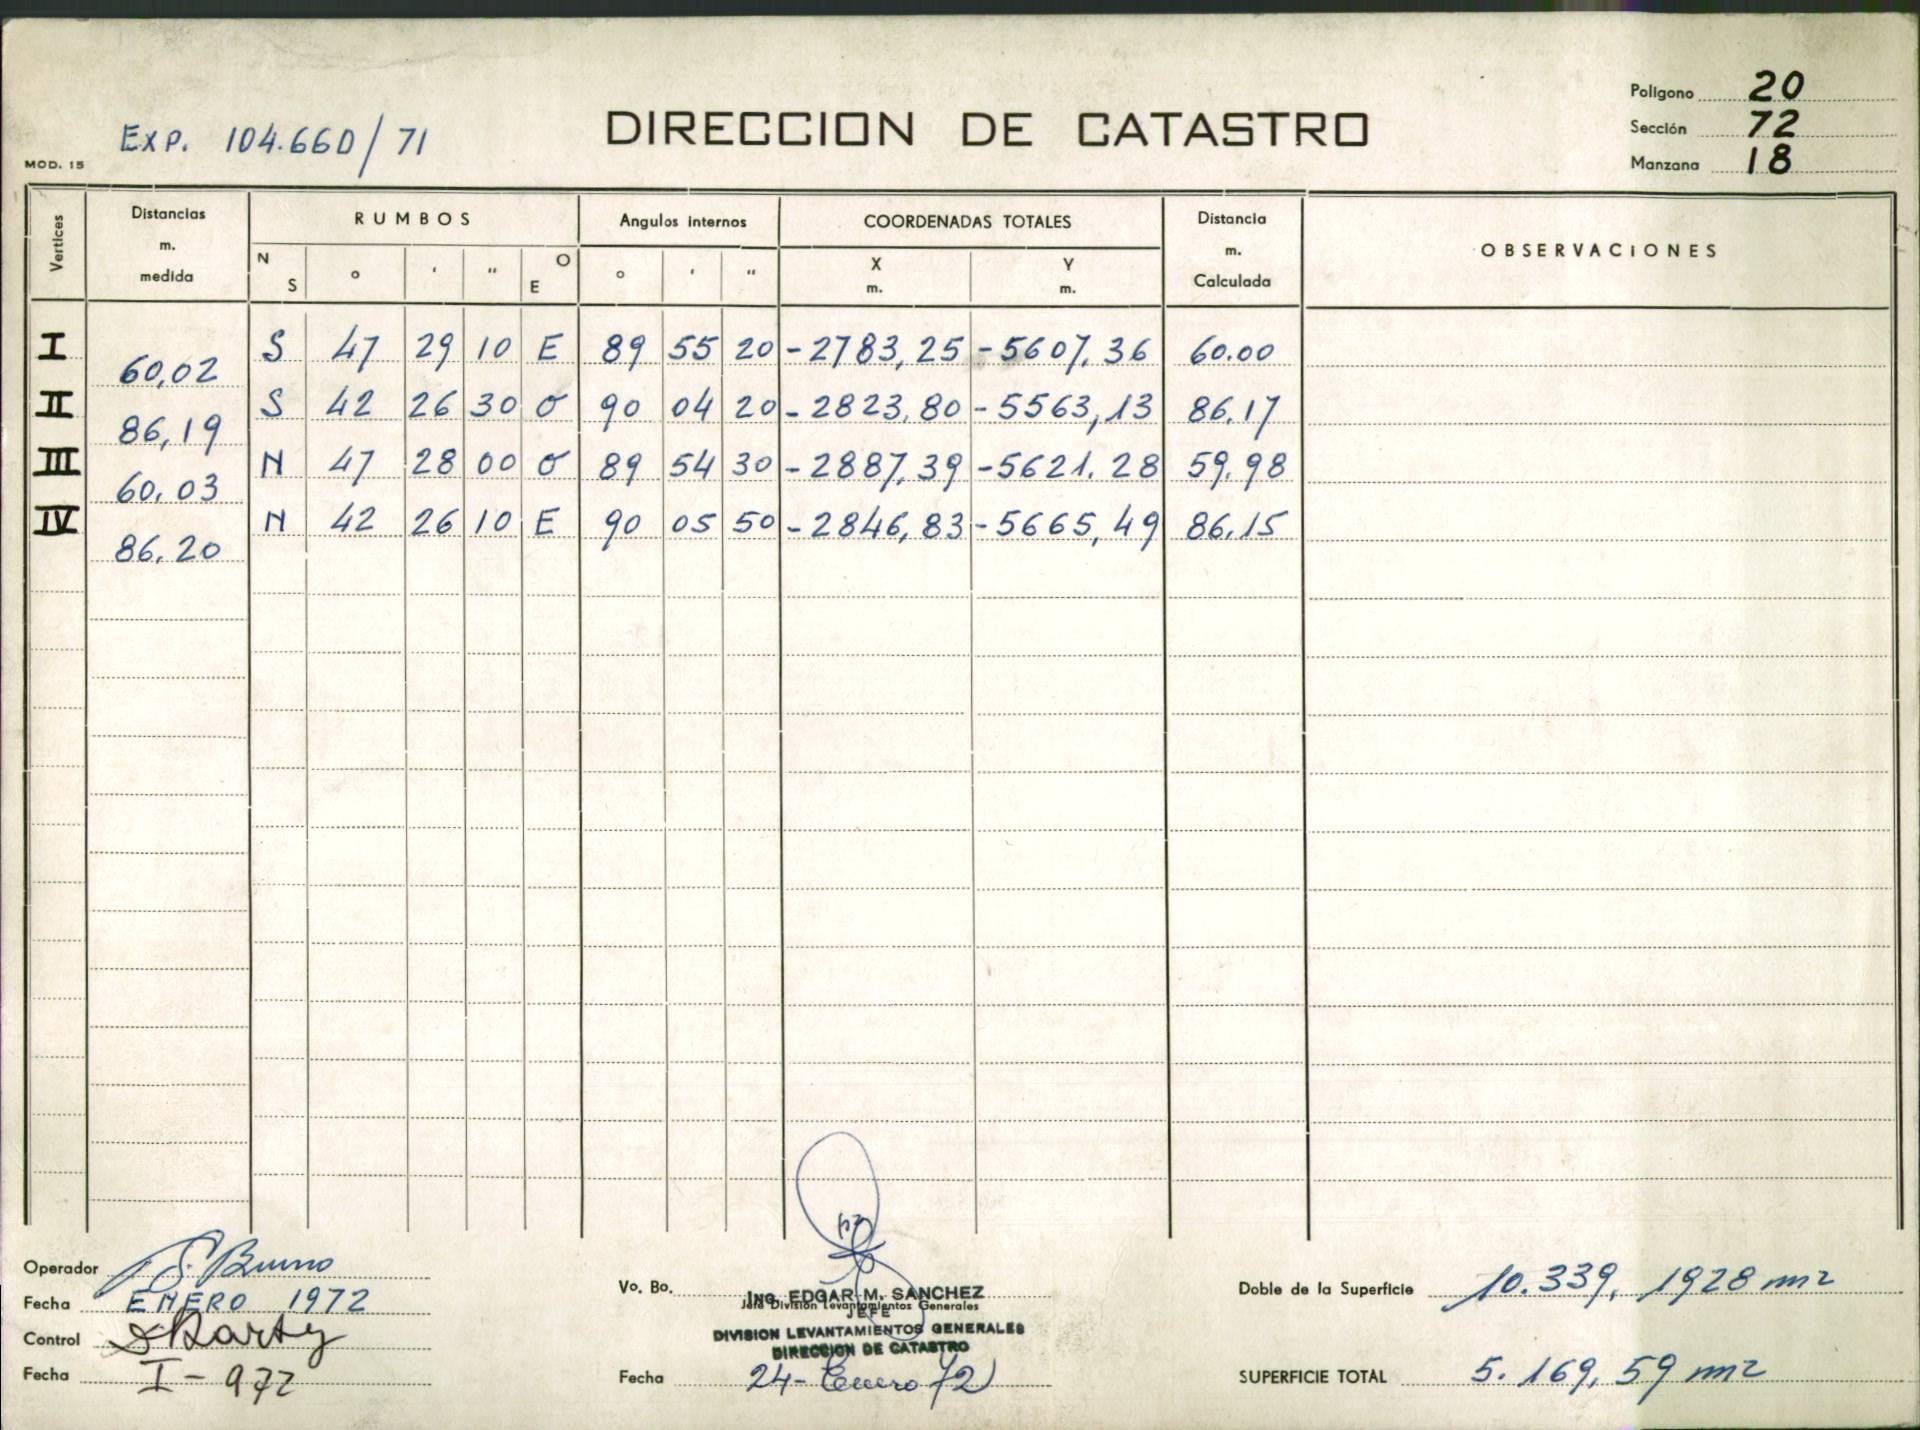 EXP. 104.660/71
DIRECCION DE CATASTRO
Polígono 20
Sección 72
Manzana 18
MOD. 15
Vertices
Distancias m. medida
RUMBOS
Angulos internos
COORDENADAS TOTALES
Distancia m. Calculada
OBSERVACIONES
N S ° ' " O E ° ' " X m. Y m.
I S 47 29 10 E 89 55 20 -2783,25 -5607,36 60.00
60,02
II S 42 26 30 O 90 04 20 -2823,80 -5563,13 86,17
86,19
III N 47 28 00 O 89 54 30 -2887,39 -5621.28 59,98
60,03
IV N 42 26 10 E 90 05 50 -2846,83 -5665,49 86,15
86,20
Operador S. Bruno
Fecha ENERO 1972
Control
Fecha I-972
Vo. Bo.
ING. EDGAR M. SANCHEZ
Jefe División Levantamientos Generales
JEFE
DIVISION LEVANTAMIENTOS GENERALES
DIRECCION DE CATASTRO
Fecha 24-Enero 72
Doble de la Superficie 10.339,1928 m2
SUPERFICIE TOTAL 5.169,59 m2